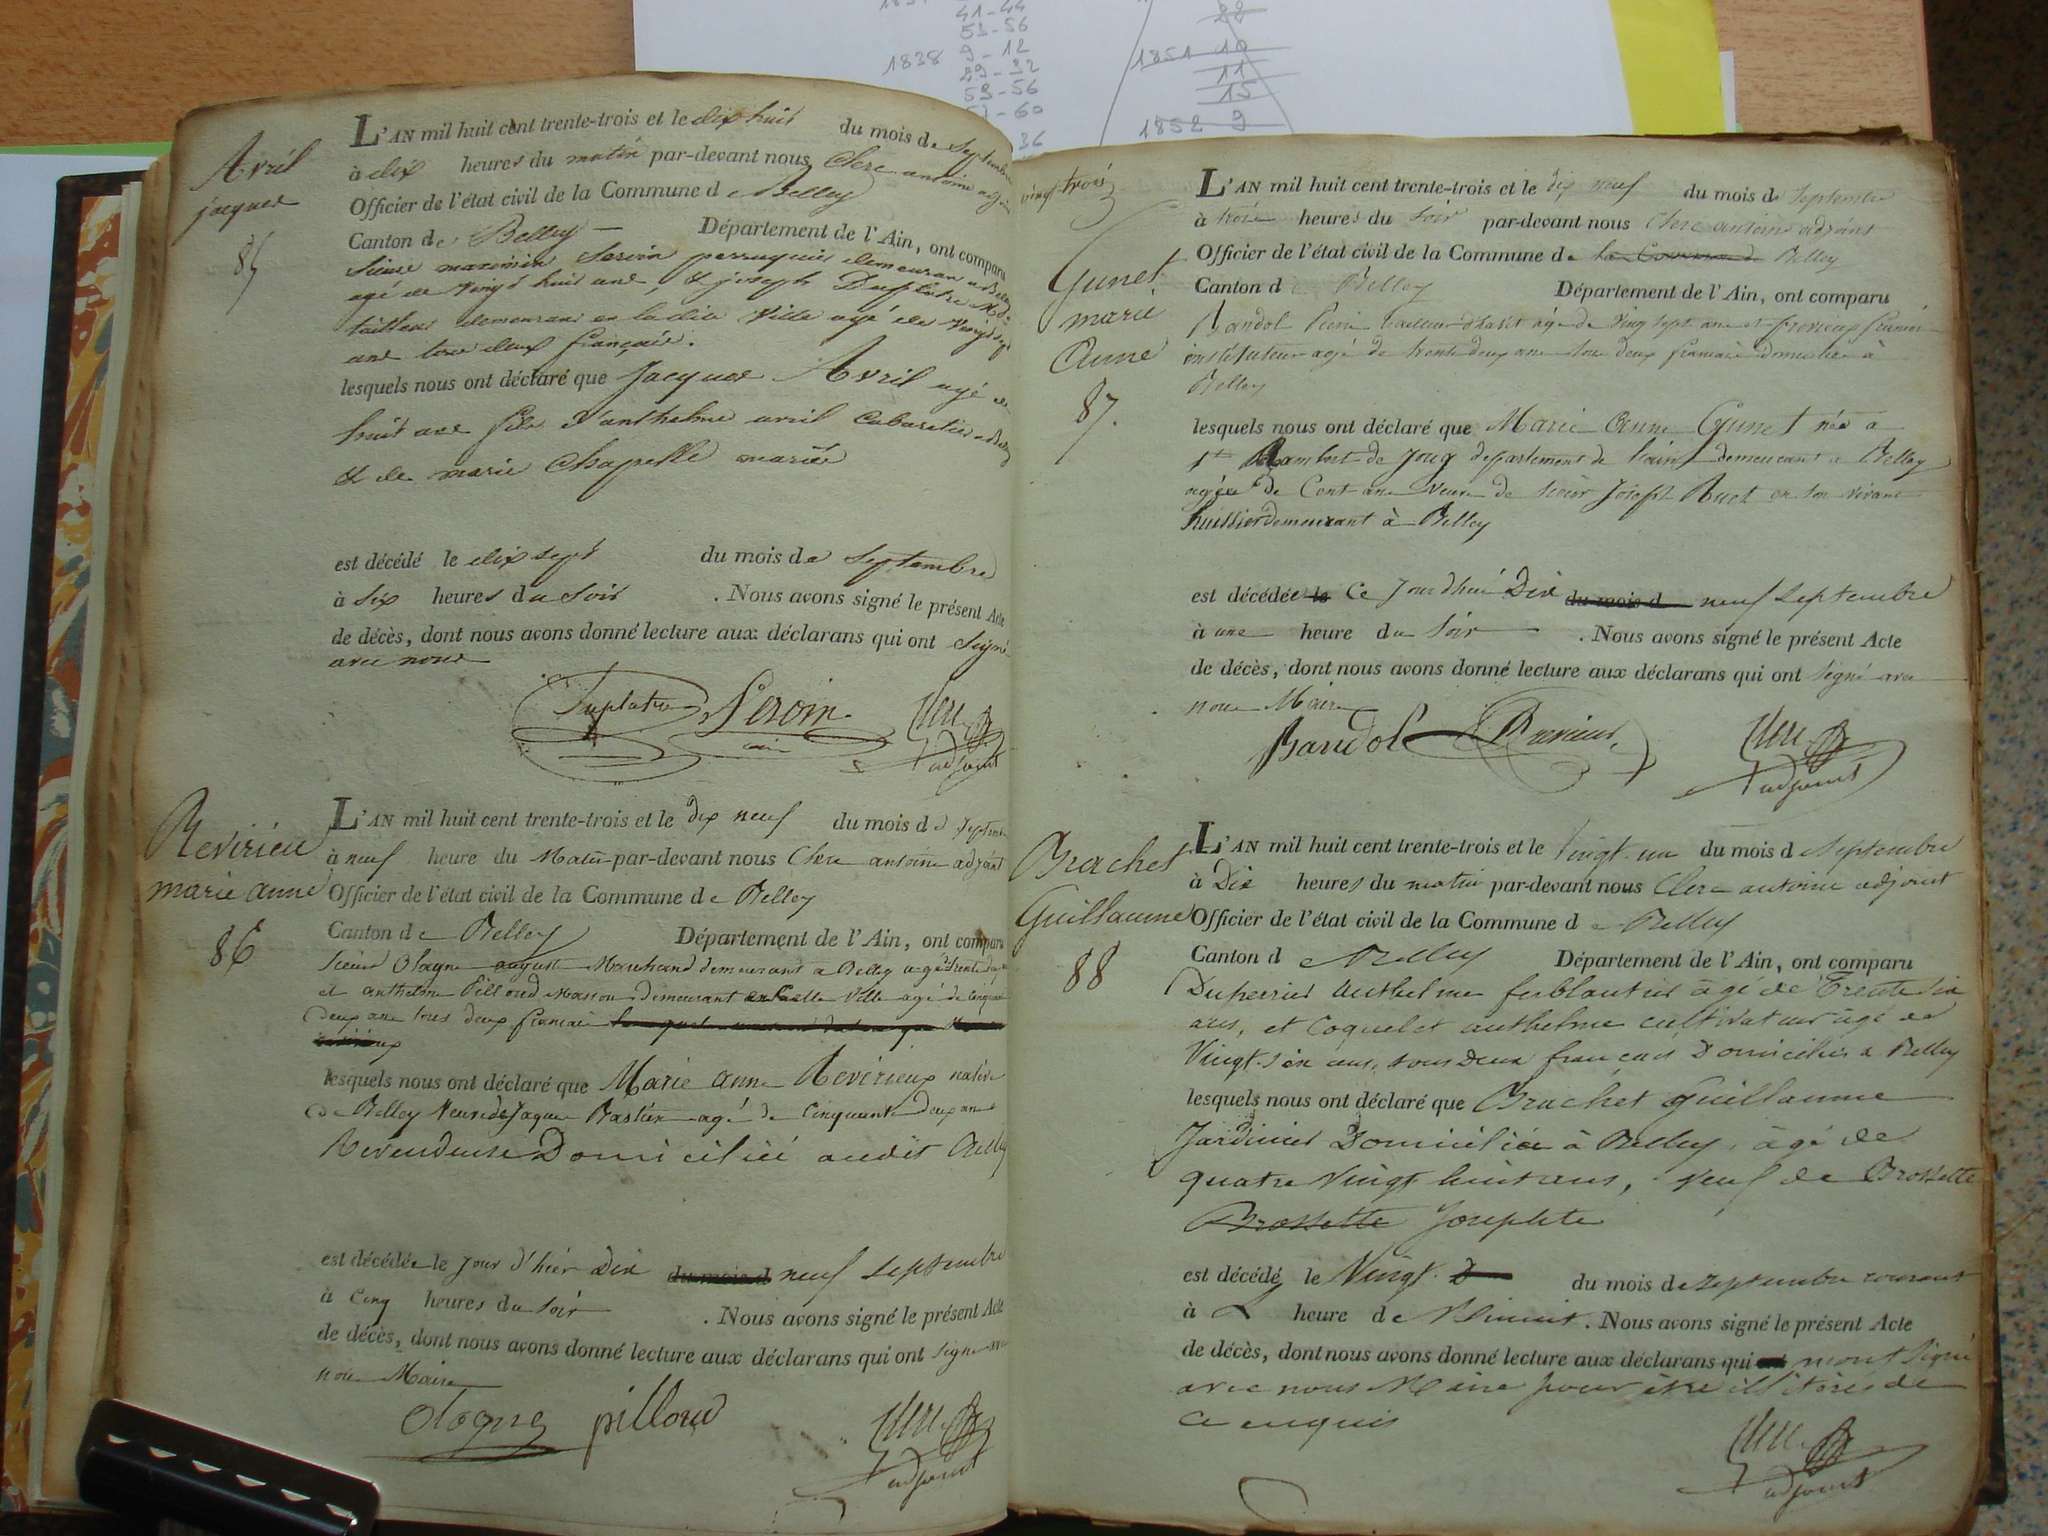 41-44
53-56
1838 9-12
29-32
53-56
57-60
36
22
1851 10
11
15
1852 9
Avril
jacques
85
L'AN mil huit cent trente-trois et le dix huit du mois de Septembre
à dix heures du matin par-devant nous Clerc antoine adjoint
Officier de l'état civil de la Commune de Belley
Canton de Belley Département de l'Ain, ont comparu
Sieur maximin Seroin perruquier demeurant a Belley
agé de Vingt huit ans, & joseph Duplatre Md
tailleur demeurant en la dite Ville agé de Vingt sept
ans tous deux français.
lesquels nous ont déclaré que Jacques Avril agé de
huit ans fils d'anthelme avril Cabaretier a Belley
& de marie Chapelle mariés
est décédé le dix sept du mois de Septembre
à six heures du soir . Nous avons signé le présent Acte
de décès, dont nous avons donné lecture aux déclarans qui ont Signé
avec nous
Duplatre Seroin Clerc
adjoint
Revirieu
marie anne
86
L'AN mil huit cent trente-trois et le dix neuf du mois de Septembre
à neuf heure du Matin par-devant nous Clerc antoine adjoint
Officier de l'état civil de la Commune de Belley
Canton de Belley Département de l'Ain, ont comparu
Sieur Ologne august Marchand demeurant a Belley agé de trente
et anthelme Pilloud Masson demeurant en la ville agé de Cinquante
Deux ans tous deux francais
lesquels nous ont déclaré que Marie Anne Revirieux native
de Belley Veuve de Jaque Bastien agé de Cinquante deux ans
Revendeuse Domiciliée audit Belley
est décédée le jour d'hier Dix du mois d neuf Septembre
à Cinq heures du soir . Nous avons signé le présent Acte
de décès, dont nous avons donné lecture aux déclarans qui ont signé avec
nous Maire
ologne pilloud Clerc
adjoint
vingt trois
Gunet
marie
Anne
87.
L'AN mil huit cent trente-trois et le dix neuf du mois de Septembre
à trois heures du soir par-devant nous Clerc antoine adjoint
Officier de l'état civil de la Commune de la Commune de Belley
Canton d Belley Département de l'Ain, ont comparu
Bandol Pierre tailleur d'habit agé de Vingt sept ans et
instituteur agé de trente deux ans tous deux francais domicilié à
Belley
lesquels nous ont déclaré que Marie Anne Gunet née a
St Rambert de Joux departement de l'ain demeurant a Belley
agée de Cent ans veuve de sieur Joseph Ruet en son vivant
huissier demeurant à Belley
est décédée le Ce jourd'hui Dix du mois d neuf Septembre
à une heure du soir . Nous avons signé le présent Acte
de décès, dont nous avons donné lecture aux déclarans qui ont signé avec
nous Maire
Bandol Clerc
adjoint
Brachet
Guillaume
88
L'AN mil huit cent trente-trois et le Vingt-un du mois d Septembre
à Dix heures du matin par-devant nous Clerc antoine adjoint
Officier de l'état civil de la Commune de Belley
Canton de Belley Département de l'Ain, ont comparu
Duperrier Anthelme ferblantier âgé de Trente six
ans, et Coquelet anthelme cultivateur âgé de
Vingt-six ans, tous Deux français Domiciliés a Belley
lesquels nous ont déclaré que Brachet Guillaume
Jardinier Domicilié à Belley, âgé de
quatre Vingt huit ans, veuf de Brossette
Brossette Josephte
est décédé le Vingt du mois de septembre courant
à heure de Minuit. Nous avons signé le présent Acte
de décès, dont nous avons donné lecture aux déclarans qui ont n'ont signé
avec nous Maire pour être illitérés de
ce enquis
Clerc
adjoint